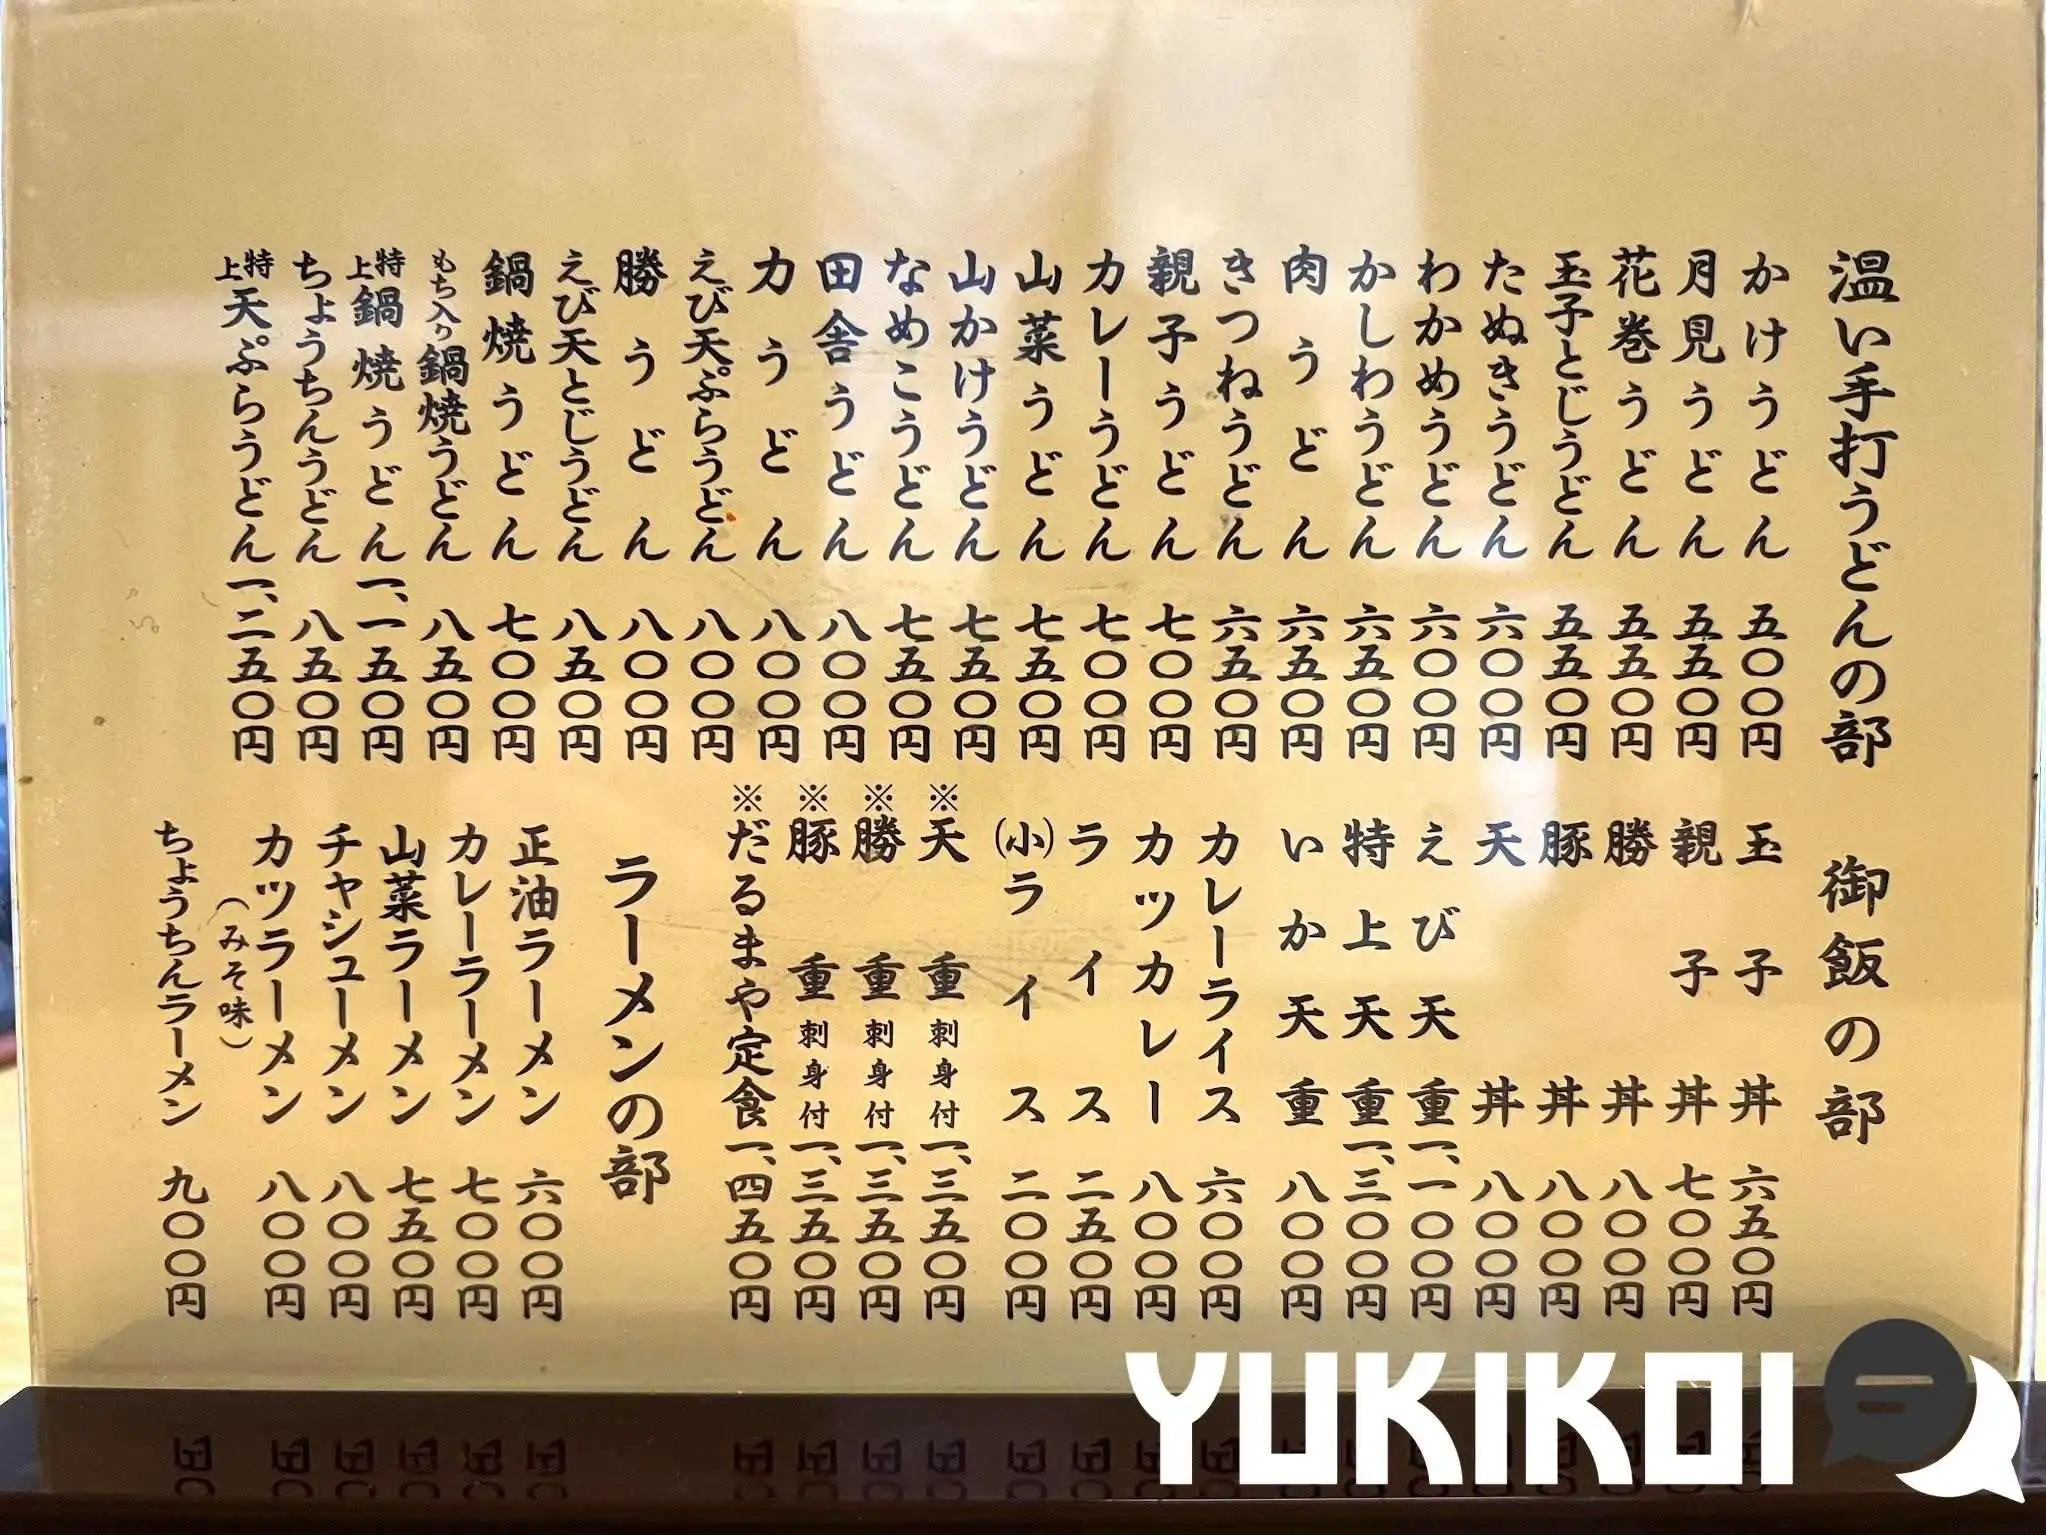 温い手打うどんの部
かけうどん 五〇〇円
月見うどん 五五〇円
花巻うどん 五五〇円
玉子とじうどん 五五〇円
たぬきうどん 六〇〇円
わかめうどん 六〇〇円
かしわうどん 六五〇円
肉うどん 六五〇円
きつねうどん 六五〇円
親子うどん 七〇〇円
カレーうどん 七〇〇円
山菜うどん 七五〇円
山かけうどん 七五〇円
なめこうどん 七五〇円
田舎うどん 八〇〇円
力うどん 八〇〇円
えび天ぷらうどん 八〇〇円
勝うどん 八〇〇円
えび天とじうどん 八五〇円
鍋焼うどん 七〇〇円
もち入り鍋焼うどん 八五〇円
特上鍋焼うどん 一、一五〇円
ちょうちんうどん 八五〇円
特上天ぷらうどん 一、二五〇円
御飯の部
玉子丼 六五〇円
親子丼 七〇〇円
勝丼 八〇〇円
豚丼 八〇〇円
天丼 八〇〇円
えび天重 一、一〇〇円
特上天重 一、三〇〇円
いか天重 八〇〇円
カレーライス 六〇〇円
カツカレー 八〇〇円
ライス 二五〇円
(小)ライス 二〇〇円
※天重 刺身付 一、三五〇円
※勝重 刺身付 一、三五〇円
※豚重 刺身付 一、三五〇円
※だるまや定食 一、四五〇円
ラーメンの部
正油ラーメン 六〇〇円
カレーラーメン 七〇〇円
山菜ラーメン 七五〇円
チャシューメン 八〇〇円
カツラーメン 八〇〇円
(みそ味)
ちょうちんラーメン 九〇〇円
YUKIKOI